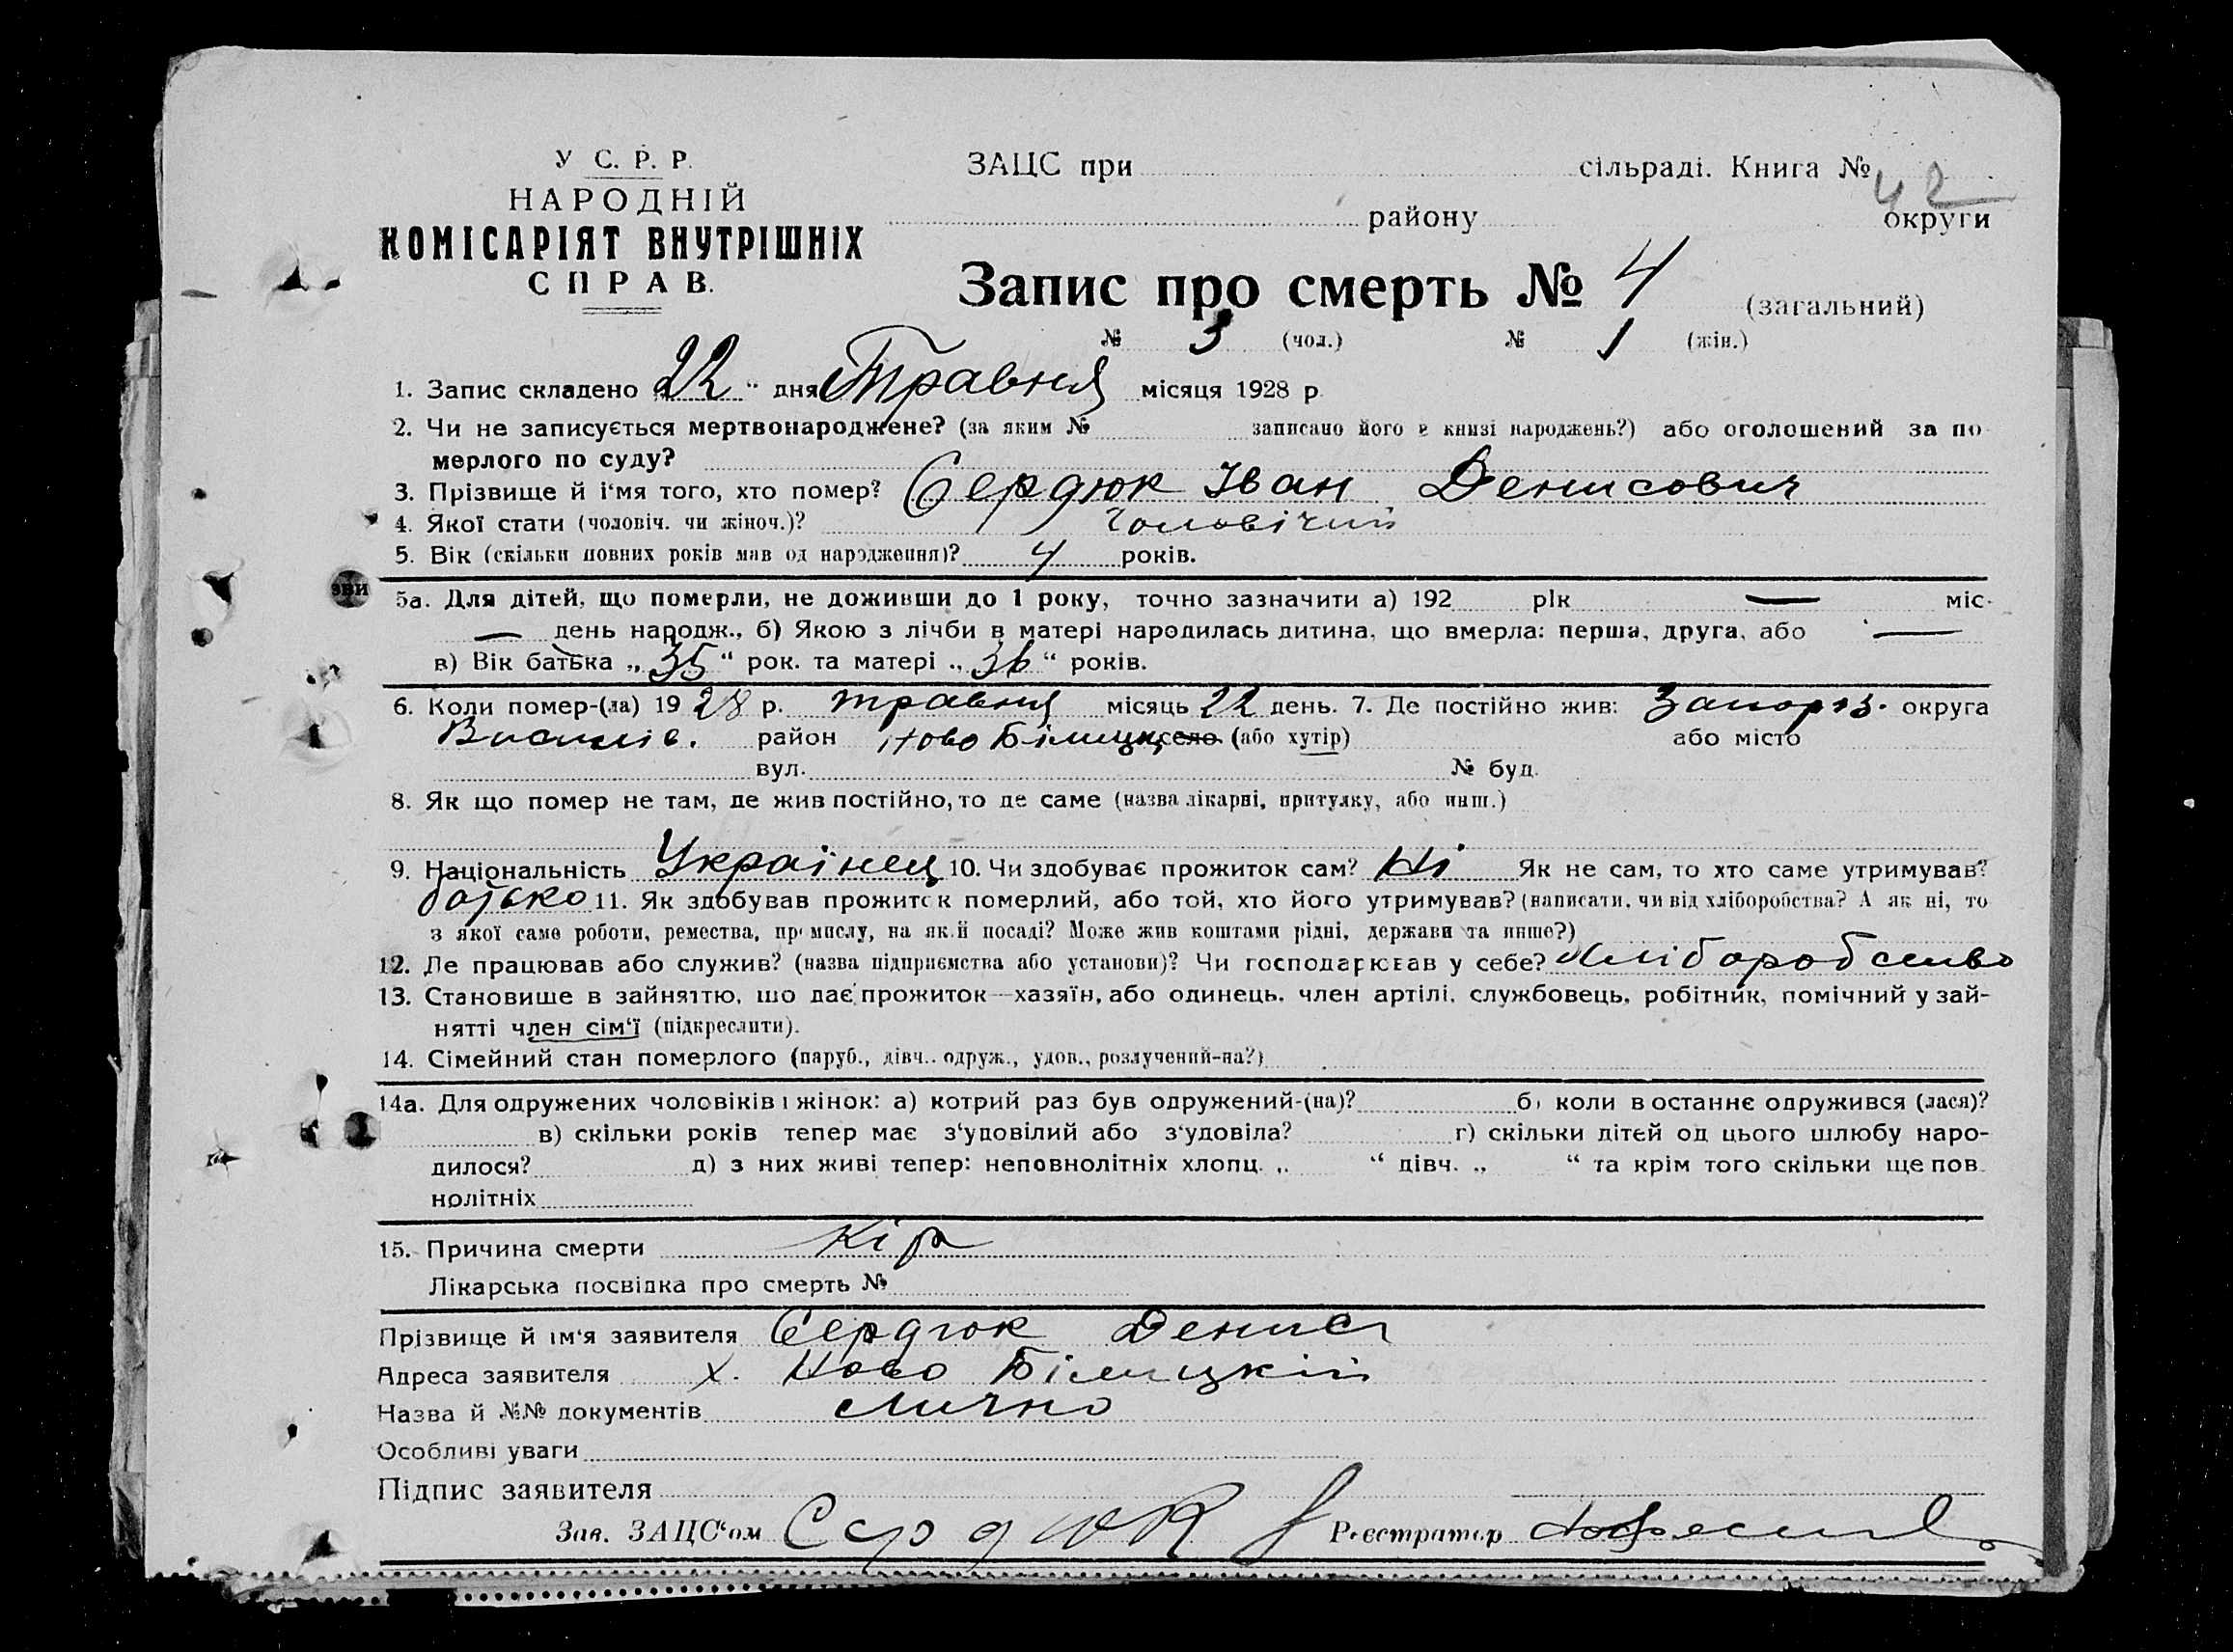 У С. Р. Р.
НАРОДНІЙ
КОМІСАРІЯТ ВНУТРІШНІХ
СПРАВ.
ЗАЦС при сільраді. Книга № 42
району округи
Запис про смерть № 4 (загальний)
№ 3 (чол.) № 1 (жін.)
1. Запис складено „22“ дня Травня місяця 1928 р.
2. Чи не записується мертвонароджене? (за яким № записано його в книзі народжень?) або оголошений за по
мерлого по суду?
3. Прізвище й і‘мя того, хто помер? Сердюк Іван Денисович
4. Якої стати (чоловіч. чи жіноч.)? Чоловічий
5. Вік (скільки повних років мав од народження)? 4 років.
5а. Для дітей, що померли, не доживши до 1 року, точно зазначити а) 192 рік — міс.
— день народж., б) Якою з лічби в матері народилась дитина, що вмерла: перша, друга, або —
в) Вік батька „35“ рок. та матері „36“ років.
6. Коли помер-(ла) 1928 р. травня місяць 22 день. 7. Де постійно жив: Запоріз. округа
район Ново село (або хутір) або місто
вул. № буд.
8. Як що помер не там, де жив постійно, то де саме (назва лікарні, притулку, або инш.)
9. Національність Украінец 10. Чи здобуває прожиток сам? Ні Як не сам, то хто саме утримував?
батько 11. Як здобував прожиток померлий, або той, хто його утримував? (написати, чи від хліборобства? А як ні, то
з якої саме роботи, ремества, промислу, на якій посаді? Може жив коштами рідні, держави та инше?)
12. Де працював або служив? (назва підприємства або установи)? Чи господарював у себе? Хліборобство
13. Становище в зайняттю, що дає прожиток—хазяїн, або одинець, член артілі, службовець, робітник, помічний у зай-
нятті член сім‘ї (підкреслити).
14. Сімейний стан померлого (паруб., дівч., одруж., удов., розлучений-на?)
14а. Для одружених чоловіків і жінок: а) котрий раз був одружений-(на)? б) коли востаннє одружився (лася)?
в) скільки років тепер має з‘удовілий або з‘удовіла? г) скільки дітей од цього шлюбу наро-
дилося? д) з них живі тепер: неповнолітніх хлопц. „ “ дівч. „ “ та крім того скільки ще пов
нолітніх
15. Причина смерти Кір
Лікарська посвідка про смерть №
Прізвище й ім‘я заявителя Сердюк Денис
Адреса заявителя х. Ново Білицкій
Назва й №№ документів Лично
Особливі уваги
Підпис заявителя
Зав. ЗАЦС‘ом Сердюк Реєстратор